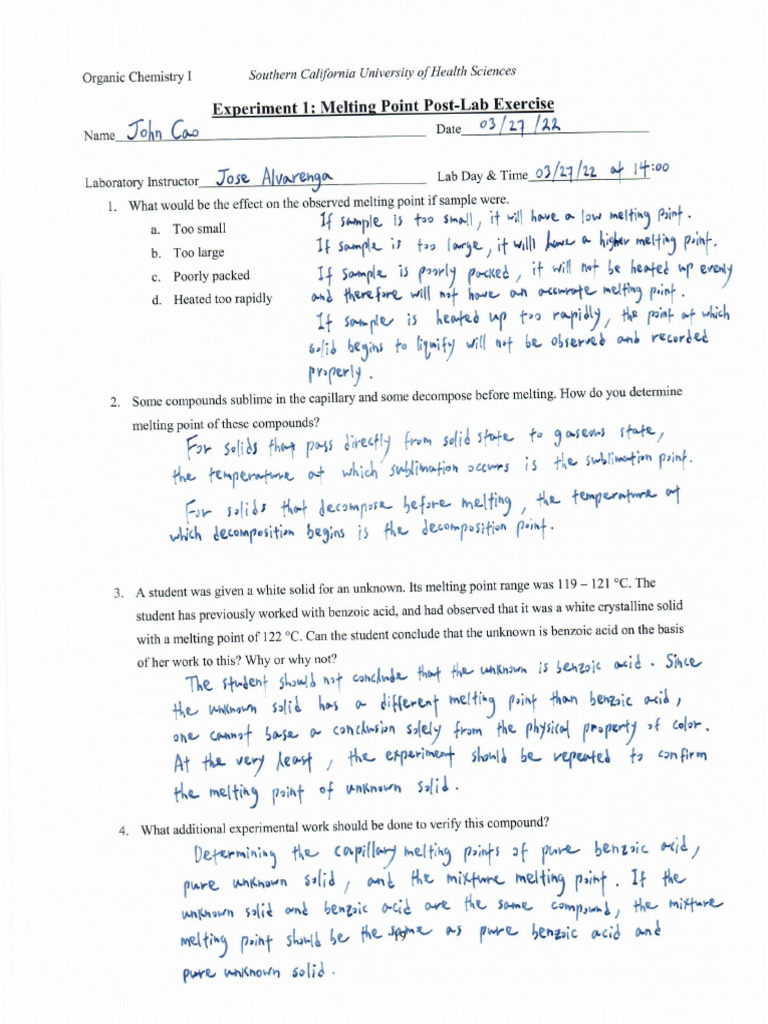 Organic Chemistry I Southern California University of Health Sciences
Experiment 1: Melting Point Post-Lab Exercise
Name John Cao Date 03/27/22
Laboratory Instructor Jose Alvarenga Lab Day & Time 03/27/22 at 14:00
1. What would be the effect on the observed melting point if sample were.
a. Too small
b. Too large
c. Poorly packed
d. Heated too rapidly
If sample is too small, it will have a low melting point.
If sample is too large, it will have a higher melting point.
If sample is poorly packed, it will not be heated up evenly
and therefore will not have an accurate melting point.
If sample is heated up too rapidly, the point at which
solid begins to liquify will not be observed and recorded
properly.
2. Some compounds sublime in the capillary and some decompose before melting. How do you determine
melting point of these compounds?
For solids that pass directly from solid state to gaseous state,
the temperature at which sublimation occurs is the sublimation point.
For solids that decompose before melting, the temperature at
which decomposition begins is the decomposition point.
3. A student was given a white solid for an unknown. Its melting point range was 119 – 121 °C. The
student has previously worked with benzoic acid, and had observed that it was a white crystalline solid
with a melting point of 122 °C. Can the student conclude that the unknown is benzoic acid on the basis
of her work to this? Why or why not?
The student should not conclude that the unknown is benzoic acid. Since
the unknown solid has a different melting point than benzoic acid,
one cannot base a conclusion solely from the physical property of color.
At the very least, the experiment should be repeated to confirm
the melting point of unknown solid.
4. What additional experimental work should be done to verify this compound?
Determining the capillary melting points of pure benzoic acid,
pure unknown solid, and the mixture melting point. If the
unknown solid and benzoic acid are the same compound, the mixture
melting point should be the same as pure benzoic acid and
pure unknown solid.